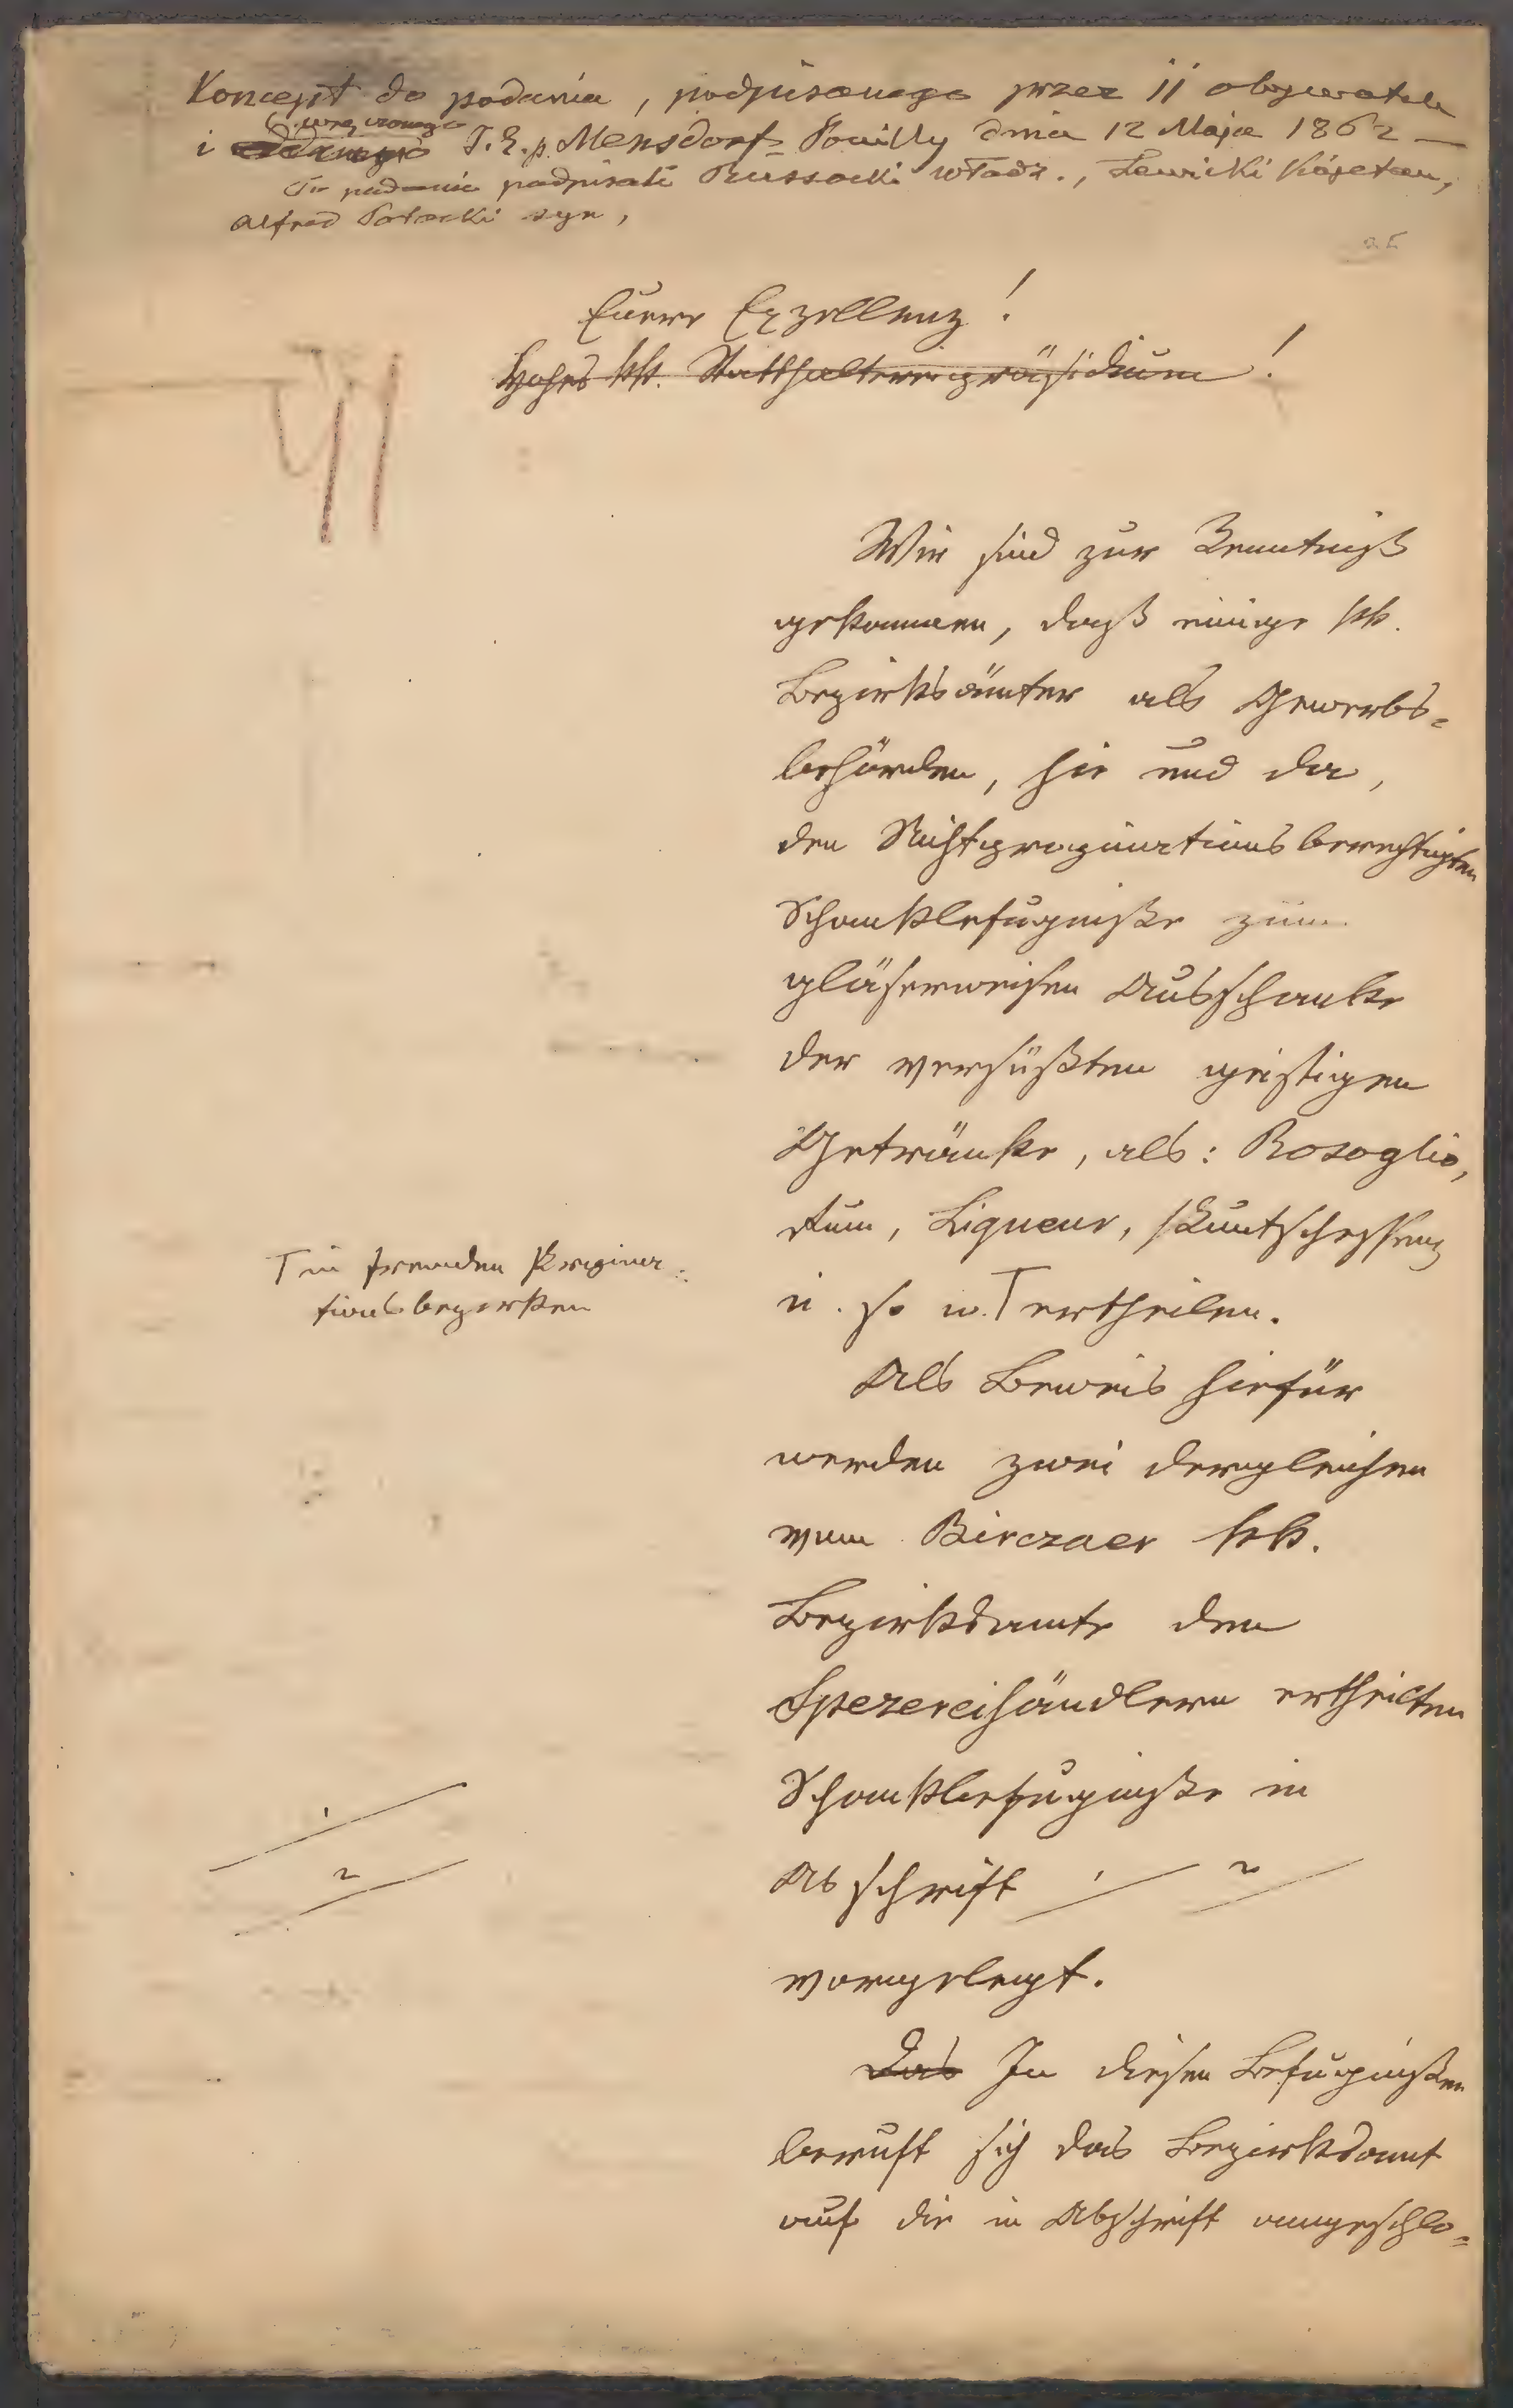 Koncept do podania, podpisanego przez 11 obywateli
wręczonego
i J. E. p. Mensdorf-Pouilly dnia 12 Maja 1862 —
To podanie podpisali Russocki Włodz., Lewicki Kajetan,
Alfred Potocki syn,
Euere Exzellenz!
Hohes kk. Statthaltereipräsidium!
Wir sind zur Kenntniß
gekommen, daß einige kk.
Bezirksämter als Gewerbs-
behörden, hie und da,
den Nichtpropinationsberechtigten
Schankbefugniße zum
gläserweisen Ausschanke
der versüßten geistigen
Getränke, als: Rosoglio,
Rum, Liqueur, Puntschessenz
u. so w. ⌈ ertheilen.
⌈ in fremden Propina-
tionsbezirken
Als Beweis hiefür
werden zwei dergleichen
vom Birczaer kk.
Bezirksamte den
Spezereihändlern ertheilten
Schankbefugniße in
Abschrift 1 2
1
2
vorgelegt.
Das In diesen Befugnißen
beruft sich das Bezirksamt
auf die in Abschrift angeschlo-